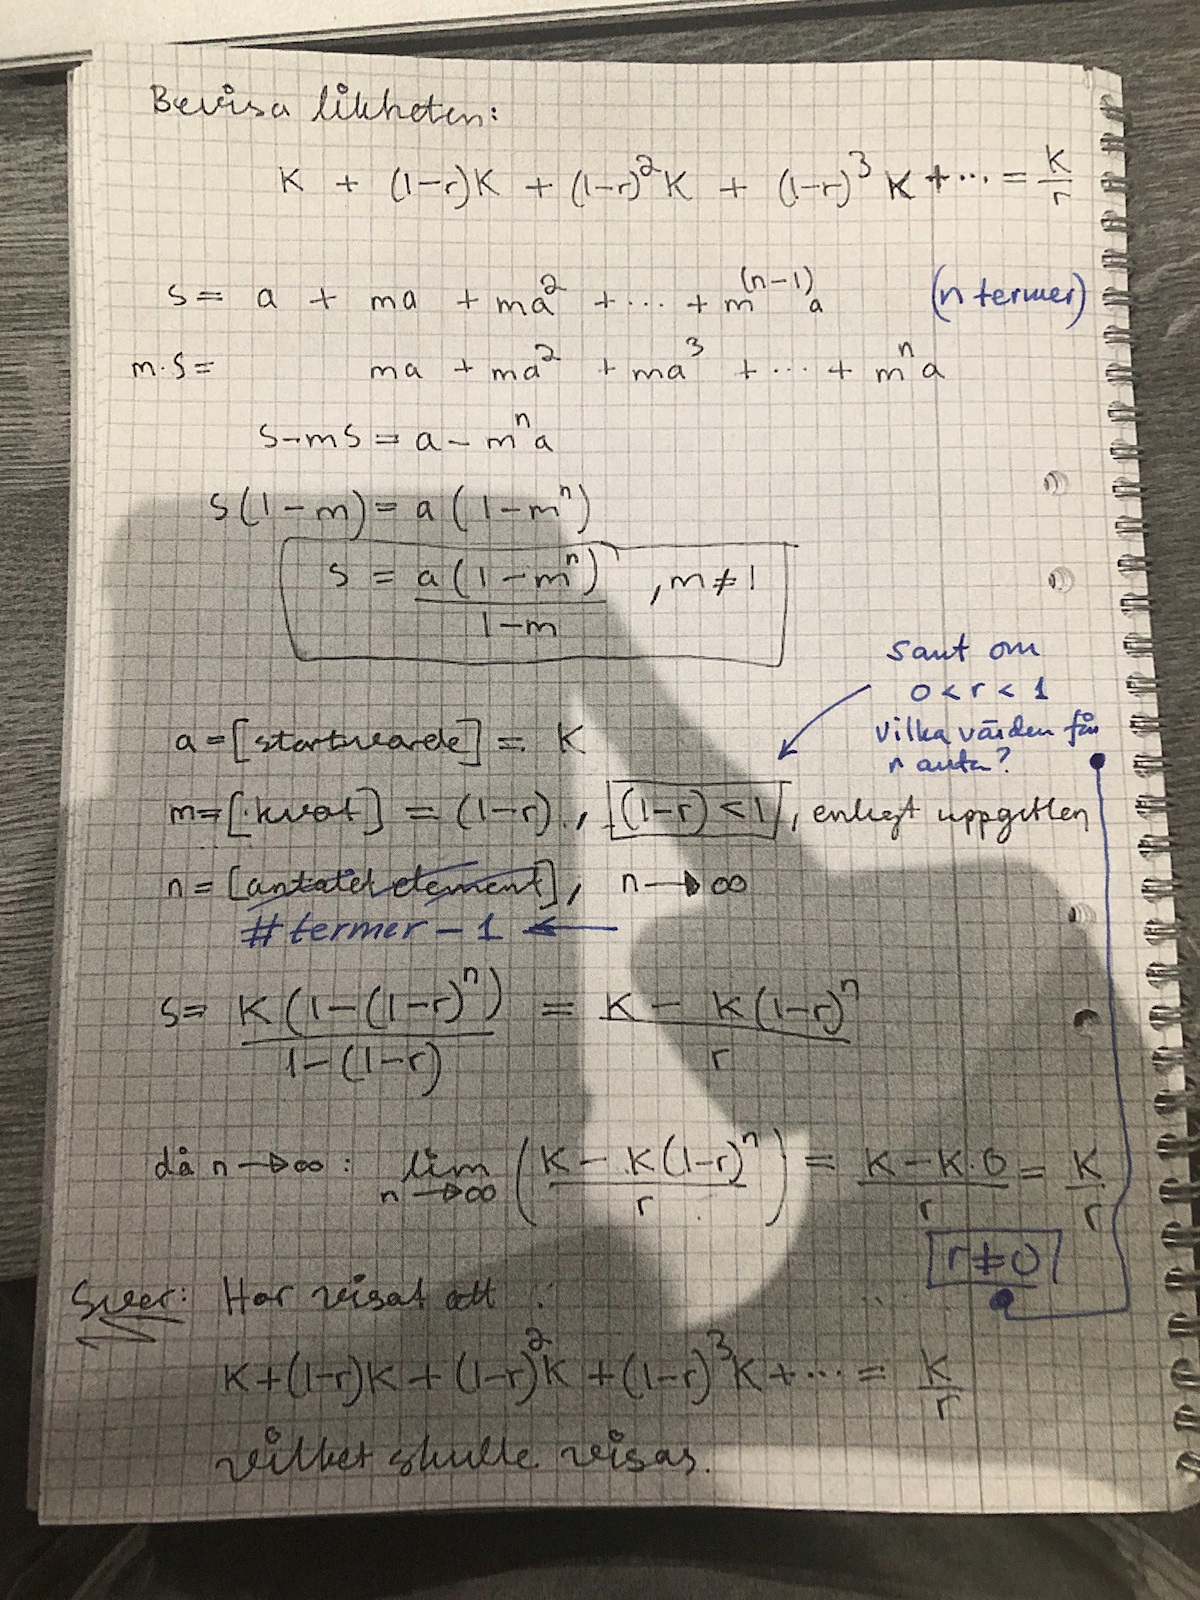 Bevisa likheten:
K + (1-r)K + (1-r)²K + (1-r)³K + ··· = K/r
S = a + ma + ma² + ··· + m⁽ⁿ⁻¹⁾a (n termer)
m·S = ma + ma² + ma³ + ··· + mⁿa
S-mS = a - mⁿa
S(1-m) = a(1-mⁿ)
S = a(1-mⁿ)/(1-m) , m≠1
Sant om
0<r<1
Vilka värden får
r anta?
a = [startvärde] = K
m = [kvot] = (1-r), (1-r)<1, enligt uppgiften
n = [antalet element], n→∞
#termer - 1 ←
S = K(1-(1-r)ⁿ)/(1-(1-r)) = (K - K(1-r)ⁿ)/r
då n→∞: lim n→∞ ((K - K(1-r)ⁿ)/r) = (K-K·0)/r = K/r
r≠0
Svar: Har visat att :
K+(1-r)K+(1-r)²K+(1-r)³K+··· = K/r
vilket skulle visas.